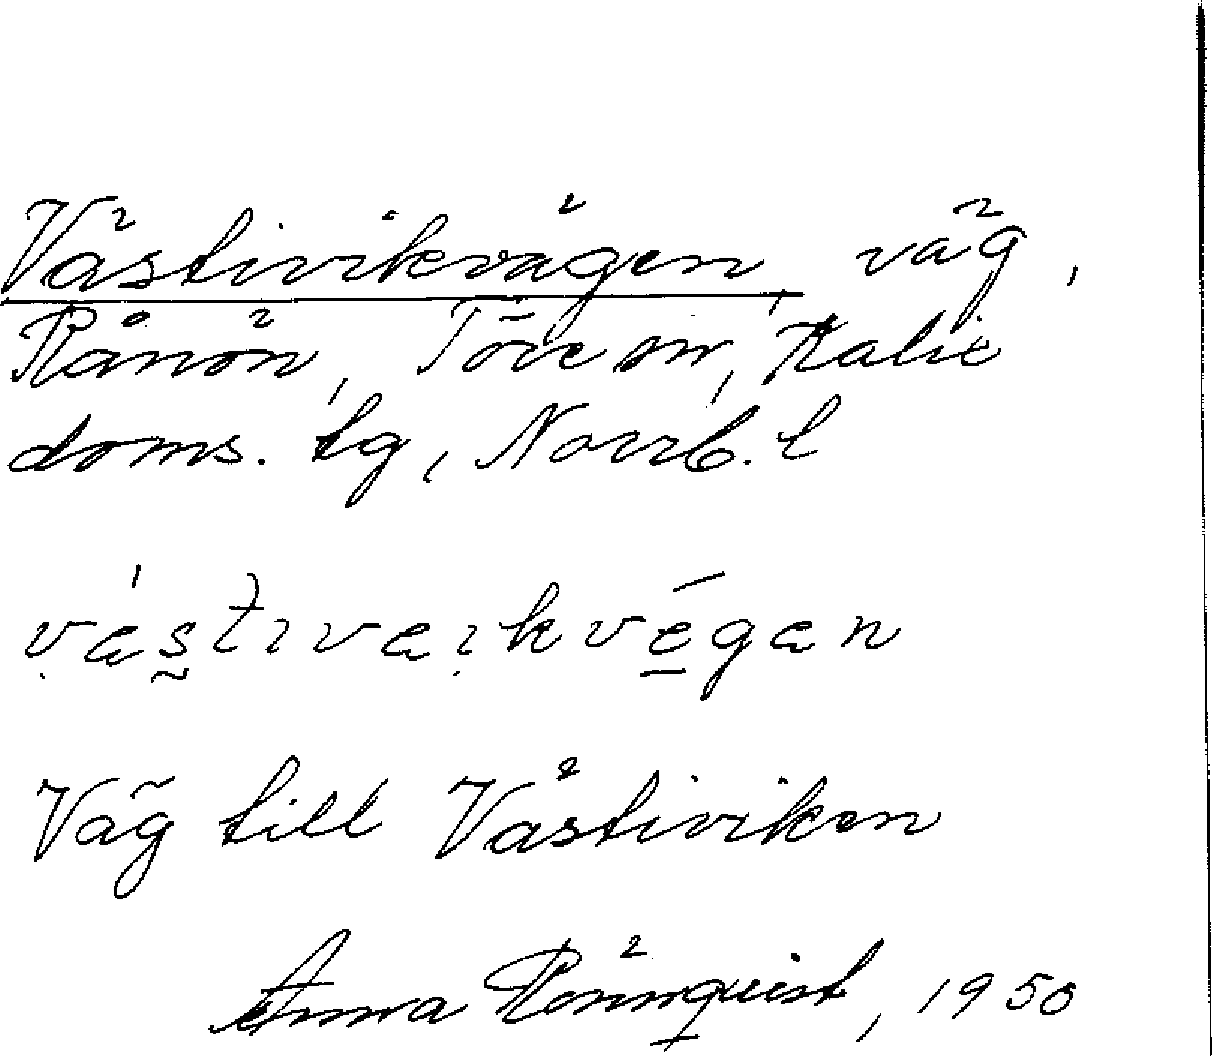 Västivikvägen, väg,
Rånön, Töre sn, Kalix
doms. tg, Norrb. l
västivaikvégan
Väg till Västiviken
Anna Rönnqvist, 1950